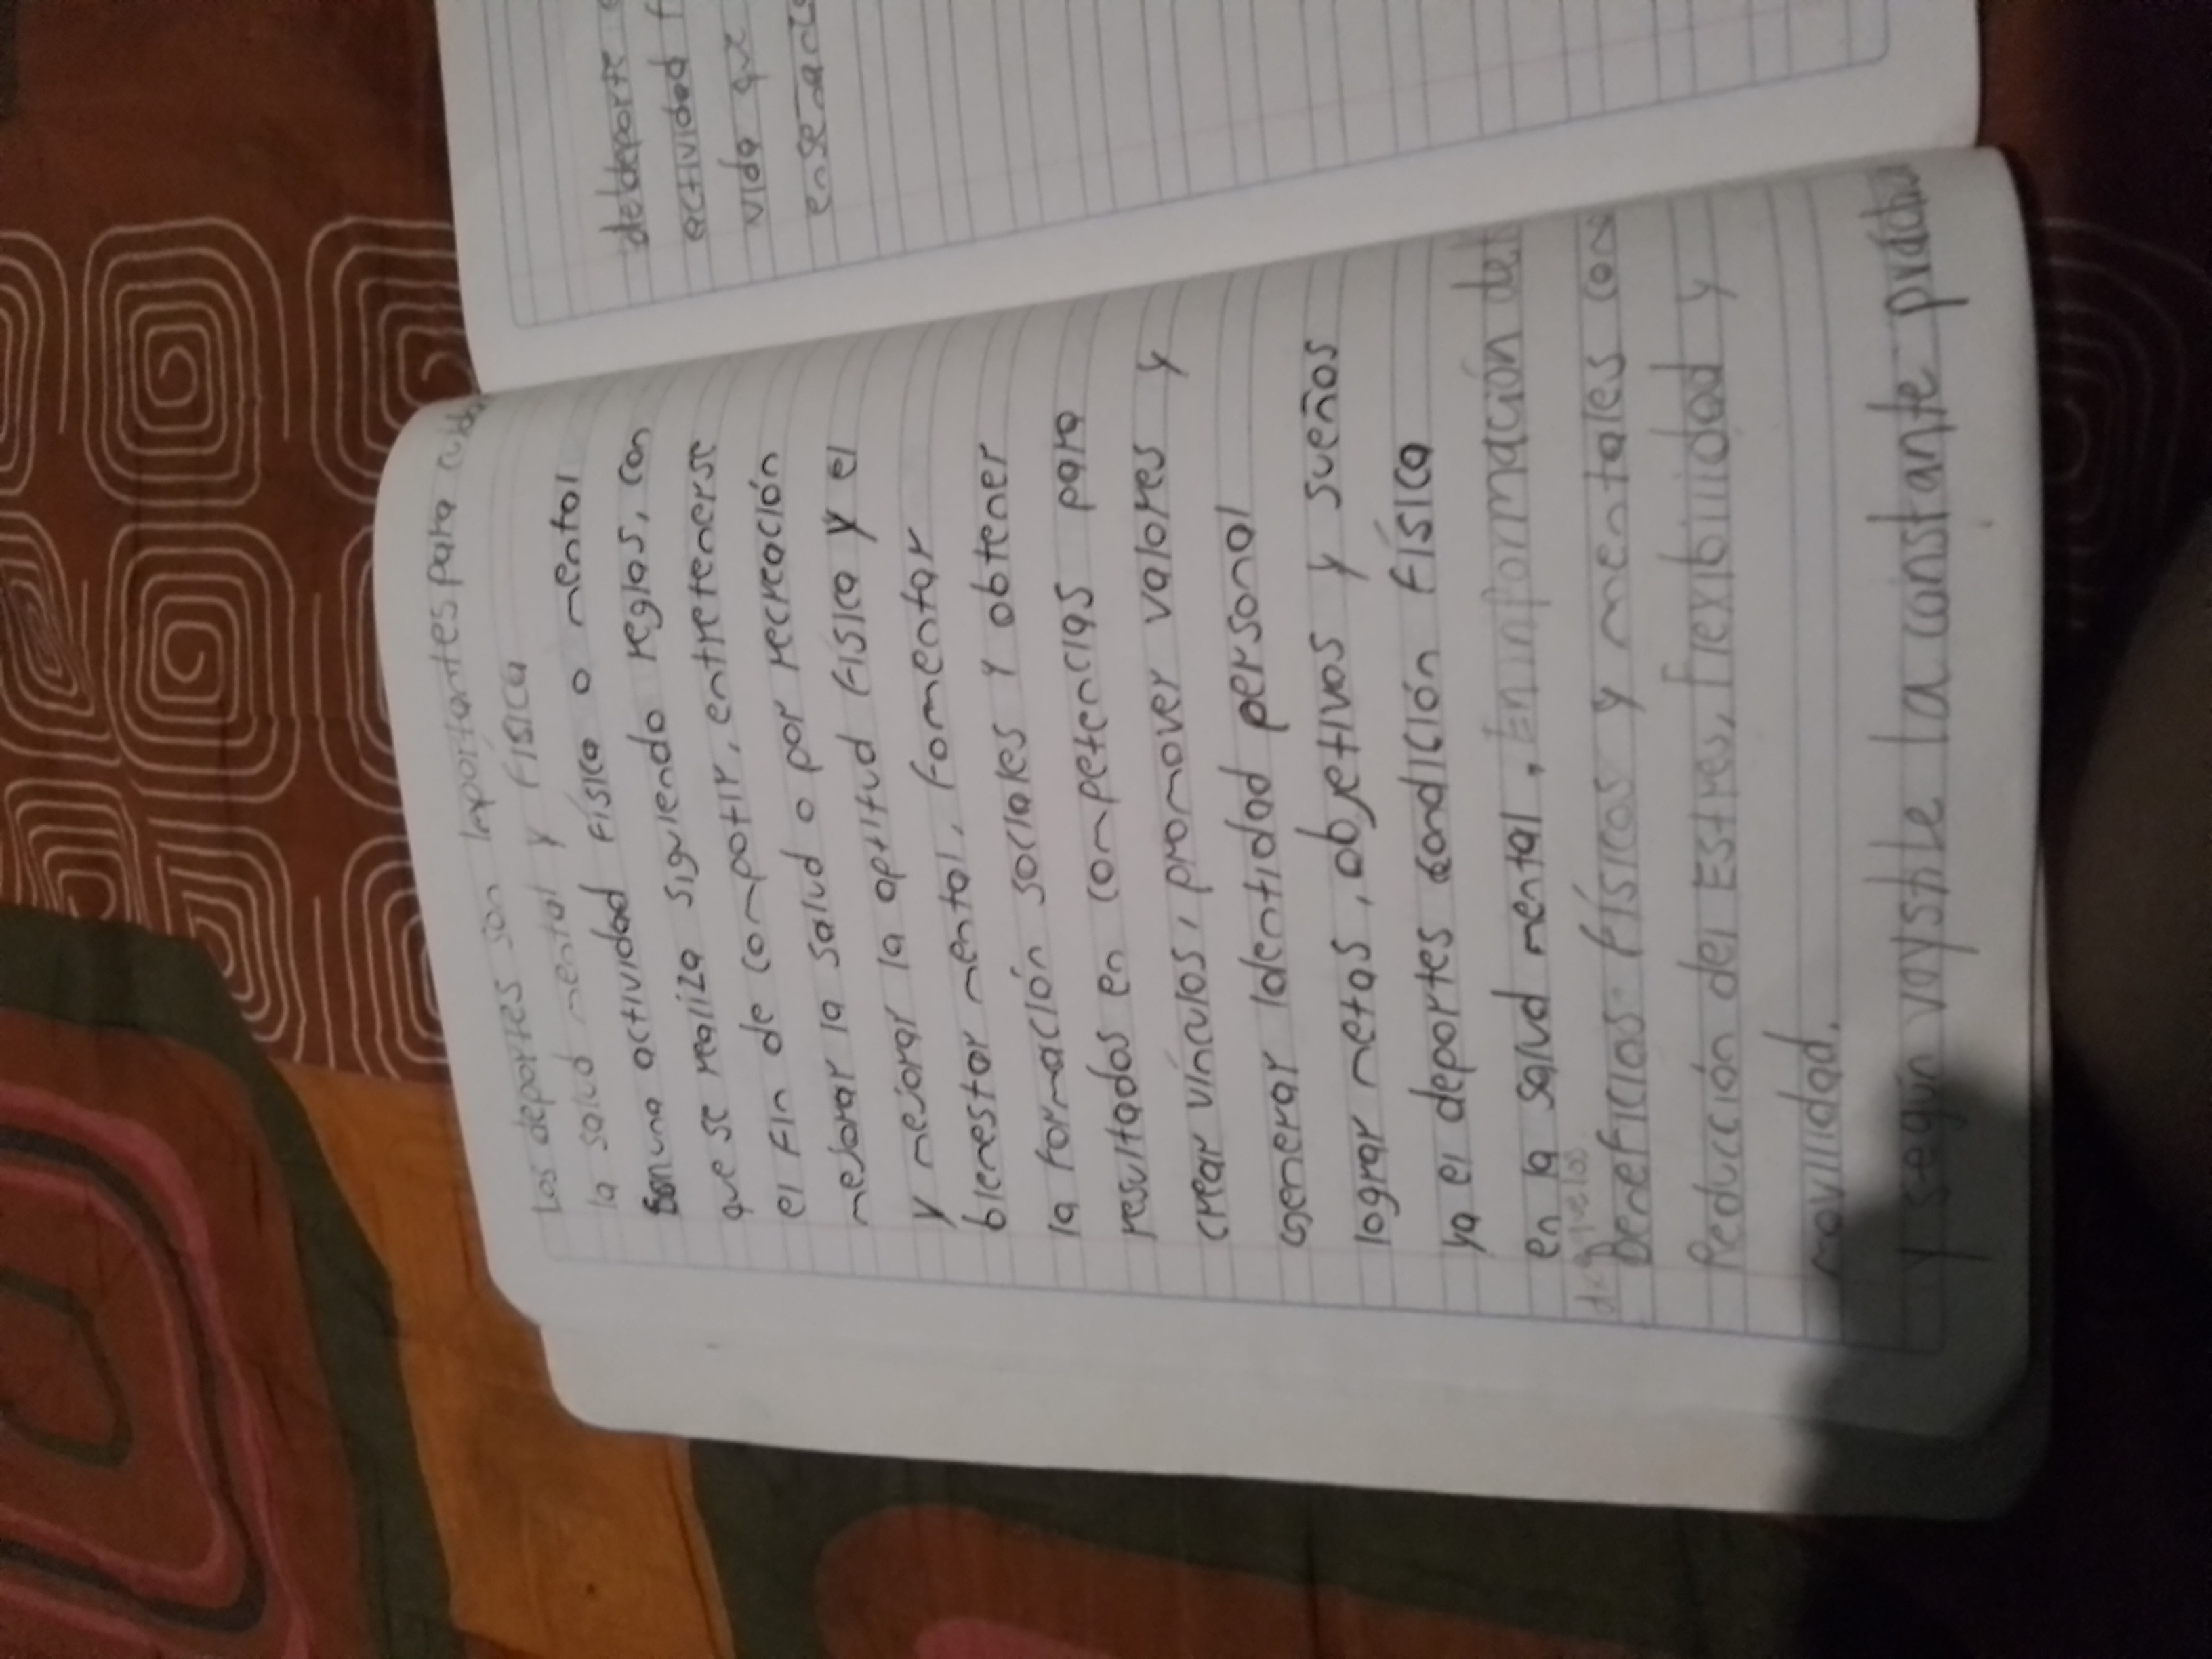 Los deportes son importantes para cuidar
la salud mental y física
Son una actividad física o mental
que se realiza siguiendo reglas, con
el fin de compotir, entretenerse
mejorar la salud o por recreación
y mejorar la aptitud física y el
bienestar mental, fomentar
la formación sociales y obtener
resultados en competencias para
crear vínculos, promover valores y
generar identidad personal
lograr metas, objetivos y sueños
ya el deportes condición física
en la salud mental. En información de
de que los
Beneficios físicos y mentales con
Reducción del Estres, flexibilidad y
movilidad.
y según la constante
deldeporte
actividad f
vida que